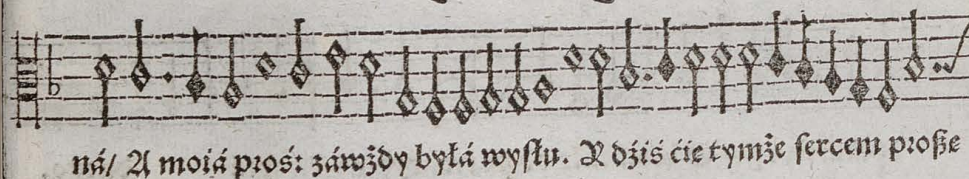 ná/ A moiá prośː záwżdy byłá wysłu. R dźiś ćie tymże sercem proße